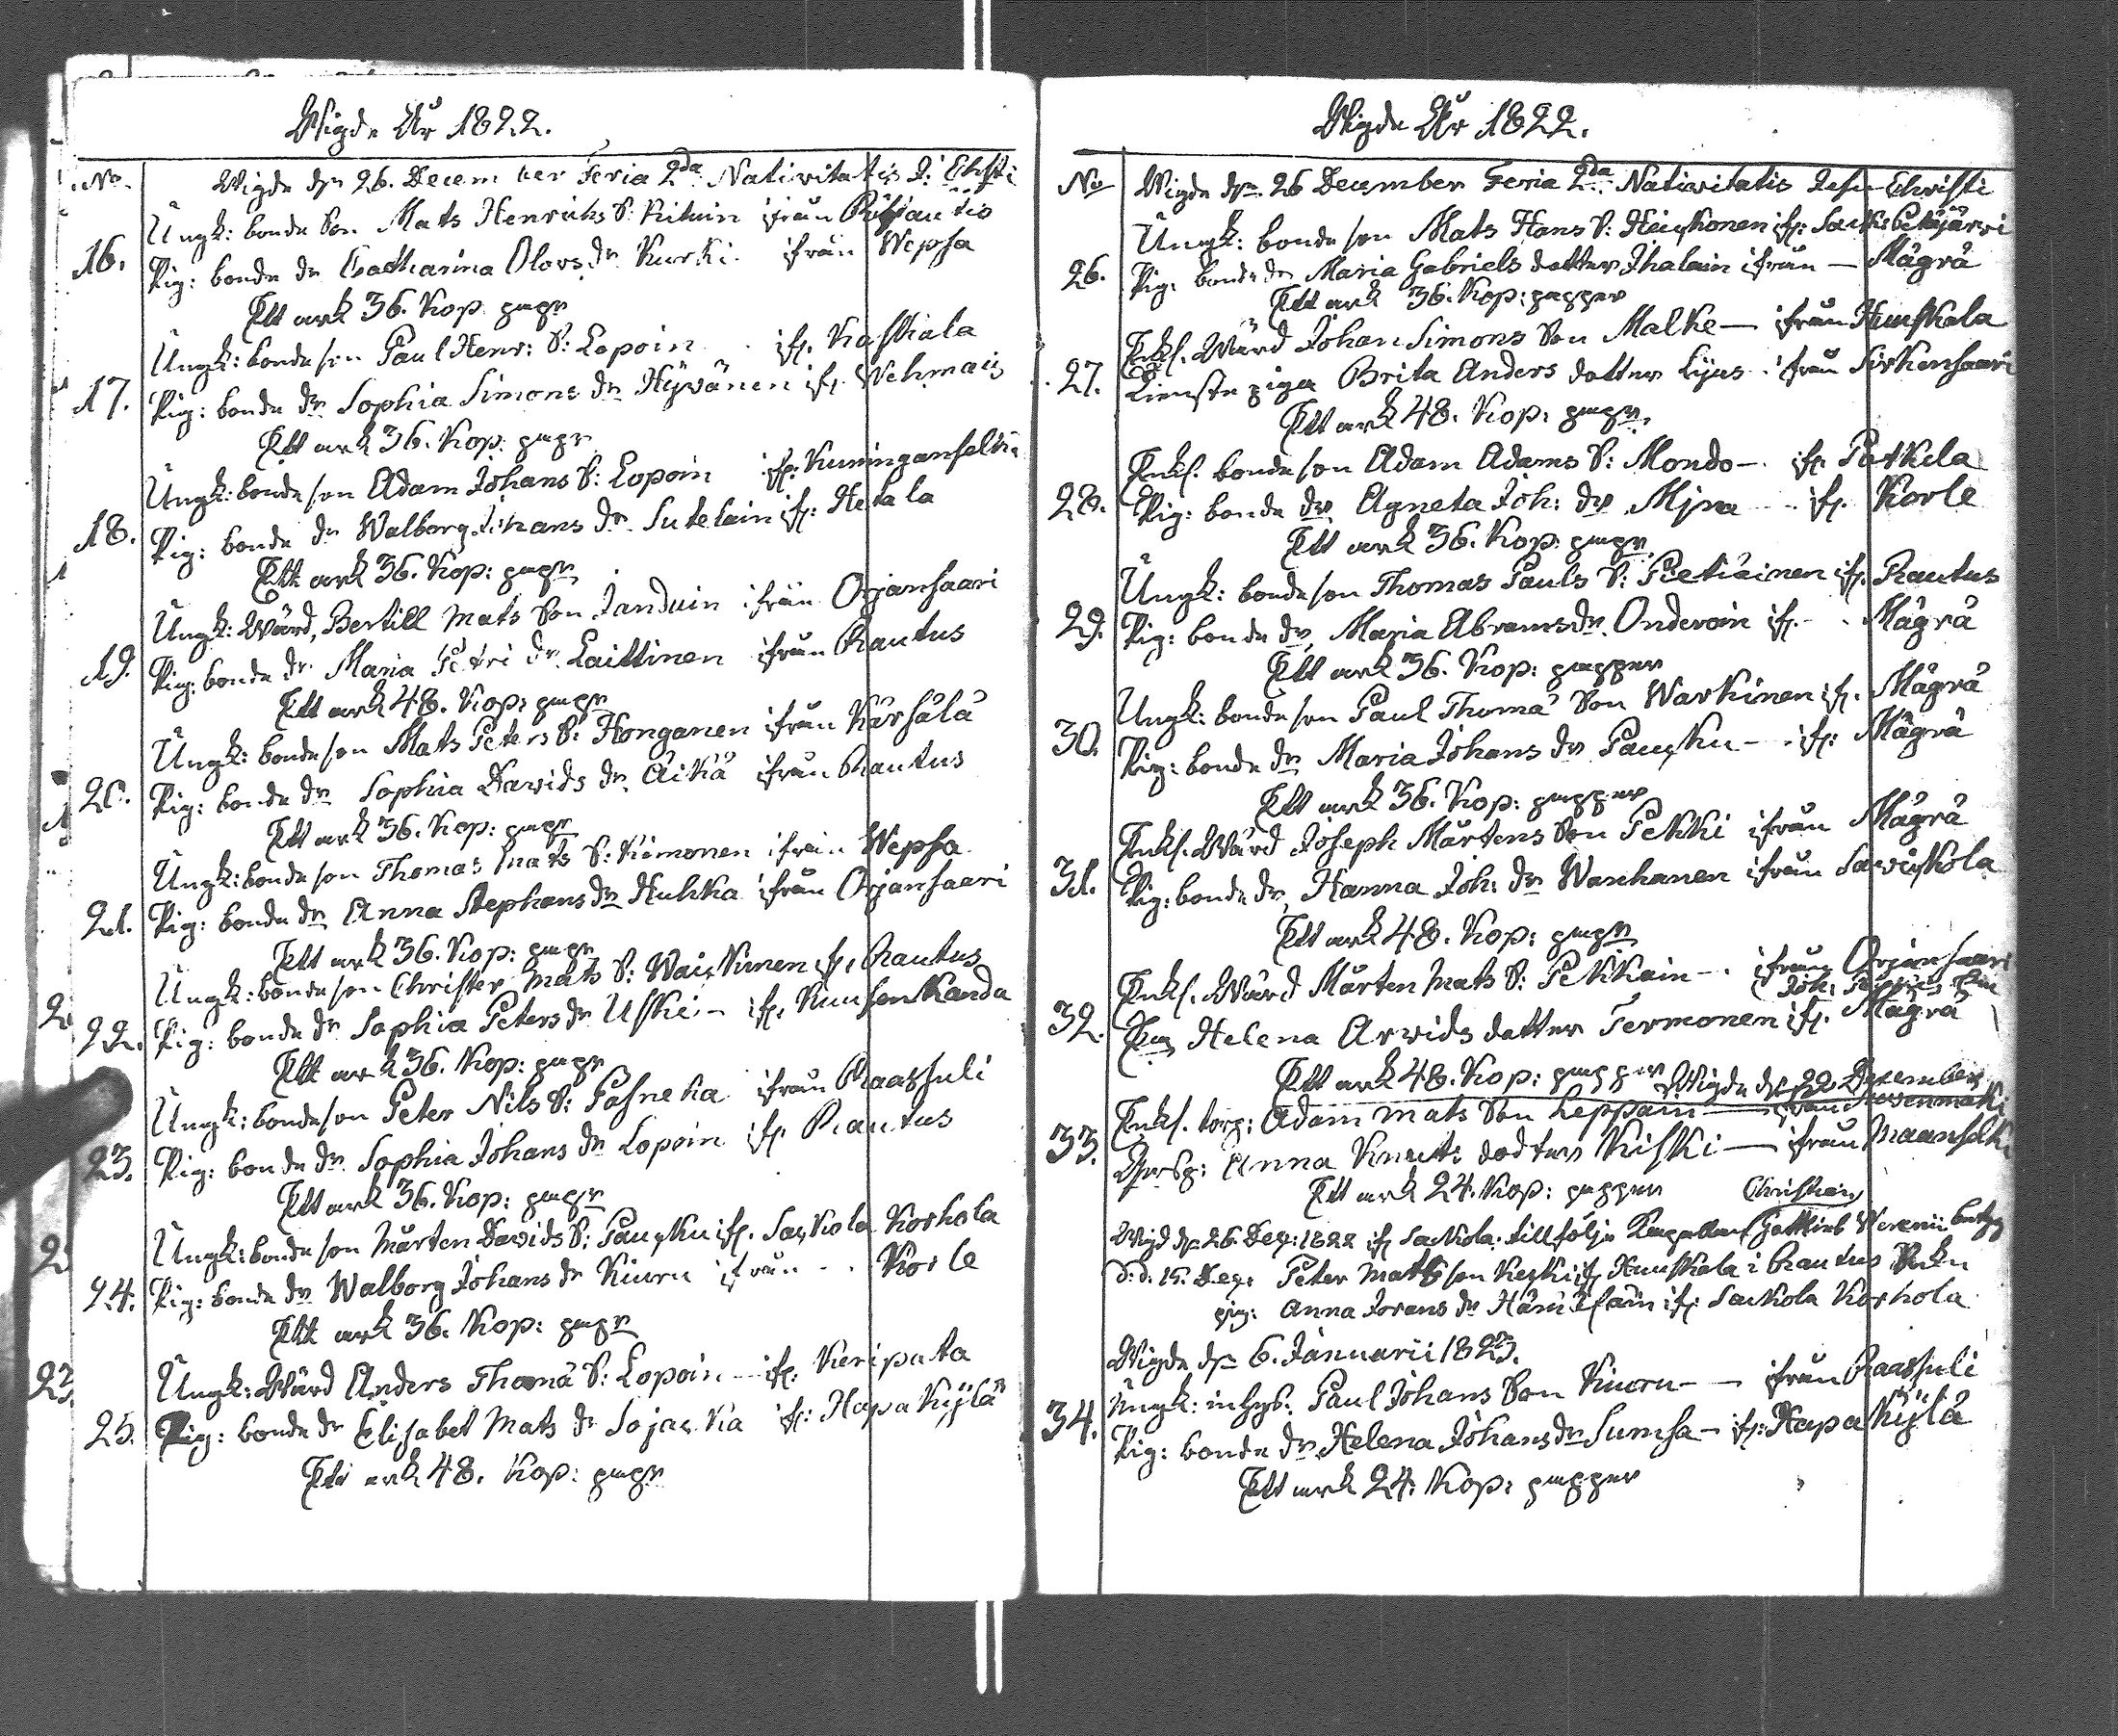 Wigde År 1822.
No. Wigde dn 26. December Feria 2da Nativitatis J: Chsti
Ungk: bonde Son Mats Henriks S: Kituin ifrån
16. Pig: bonde dr Catharina Olovs dr Kurki ifrån Wepsa
Ett ark 36. Kop. papr
Ungk: bonde son Paul Henr: S: Lopoin ifr. Kaskiala
17. Pig: bonde dr Sophia Simons dr Hÿvänen ifr. Wehmais
Ett ark 36. Kop: papr
Ungk: bonde son Adam Johans S: Lopoin ifr. Kuninganselkä
18. Pig: bonde dr Walborg Johans dr Sutelain ifr: Hetala
Ett ark 36. Kop: papr
Ungk: Wärd, Bertill Mats Son Janduin ifrån Orjansaari
19. Pig: bonde dr Maria Petri dr Laittinen ifrån Rautus
Ett ark 48. Kop: papr
Ungk: bonde son Mats Peters S: Honganen ifrån Kärsälä
20. Pig: bonde dr Sophia Davids dr Äikä ifrån Rautus
Ett ark 36. Kop: papr
Ungk: bonde son Thomas Mats S: Kimonen ifrån Wepsa
21. Pig: bonde dr Anna Stephans dr Huhka ifrån Orjansaari
Ett ark 36. Kop: papr
Ungk: bonde son Christer Mats S: Waiskinen ifr. Rautus
22. Pig: bonde dr Sophia Peters dr Uski – ifr. Kuusenkanda
Ett ark 36. Kop: papr
Ungk: bonde son Peter Nils S: Pasneka ifrån Raassuli
23. Pig: bonde dr Sophia Johans dr Lopoin ifr. Rautus
Ett ark 36. Kop: papr
Ungk: bonde son Mårten Davids S: Pauku ifr. Sackola Korhola
24. Pig: bonde dr Walborg Johans dr Kiuru ifrån Korle
Ett ark 36. Kop: papr
Ungk: Wärd Anders Thomä S: Lopoin – ifr. Keripata
25. Pig: bonde dr Elisabet Mats dr Sojacka ifr: HapaKÿlä
Ett ark 48. Kop: papr
Wigde År 1822.
No Wigde dn 26 December Feria 2da Nativitatis Jesu Christi
Ungk: bonde son Mats Hans S: Heiskonen ifr: Sack: Petäjärvi
26. Pig: bonde dr Maria Gabriels dotter Ihalain ifrån – Mägrä
Ett ark 36. Kop: papper
Enkl. Wärd Johan Simons Son Malke – ifrån Huuskala
27. Tienste piga Brita Anders dotter Lyus ifrån Sirkensaari
Ett ark 48. Kop: papr
Enkl. bonde son Adam Adams S: Mondo – ifr. Potkela
28. Pig: bonde dr Agneta Joh: dr Mÿra – ifr. Korle
Ett ark 36. Kop: papr
Ungk: bonde son Thomas Pauls S: Pietiäinen ifr. Rautus
29. Pig: bonde dr Maria Abrams dr Onderoin ifr. Mägrä
Ett ark 36. Kop: papper
Ungk: bonde son Paul Thomä Son Warkinen ifr. Mägrä
30. Pig: bonde dr Maria Johans dr Pauku – ifr: Mägrä
Ett ark 36. Kop: papper
Enkl. Wärd Joseph Mårtens Son Pekki ifrån Mägrä
31. Pig: bonde dr Hanna Joh: dr Wanhanen ifrån Saviskola
Ett ark 48. Kop: papr
Enkl. Wärd Mårten Mats S: Pekkain – ifrån Orjansaari
32. Enk Helena Arvids dotter Termonen ifr. Mägrä
Ett ark 48. Kop: papper Wigde dn 29 December
Enkl. torp: Adam Mats Son Leppäin – ifrån
33. Anna Knuts dodter Kiski – ifrån Maanselkä
Ett ark 24. Kop: papper
Christian
Wigd dn 26. Dez: 1822 ifr Sackola. tillfölje Capellans Gottlieb Werenii betyg
d:d: 15. Dez: Peter Mats son Keski ifr Huuskala i Rautus Sokn
pig: Anna Jorans dr Hämäläin ifr Sackola Korhola
Wigde dn 6. Januarii 1823.
Ungk: inhys: Paul Johans Son Kiuru – ifrån Raassuli
34. Pig: bonde dr Helena Johans dr Sumsa – ifr: HapaKÿlä
Ett ark 24. Kop: papper